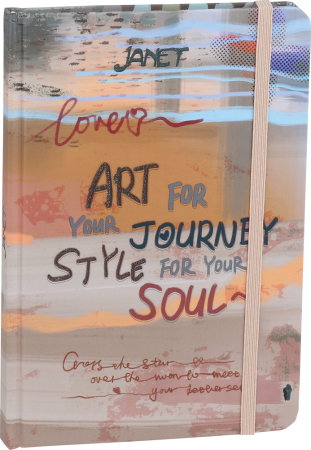 JANET
love
ART FOR
YOUR JOURNEY
STYLE FOR YOUR
SOUL~
Cross the star
over the moon to meet
your